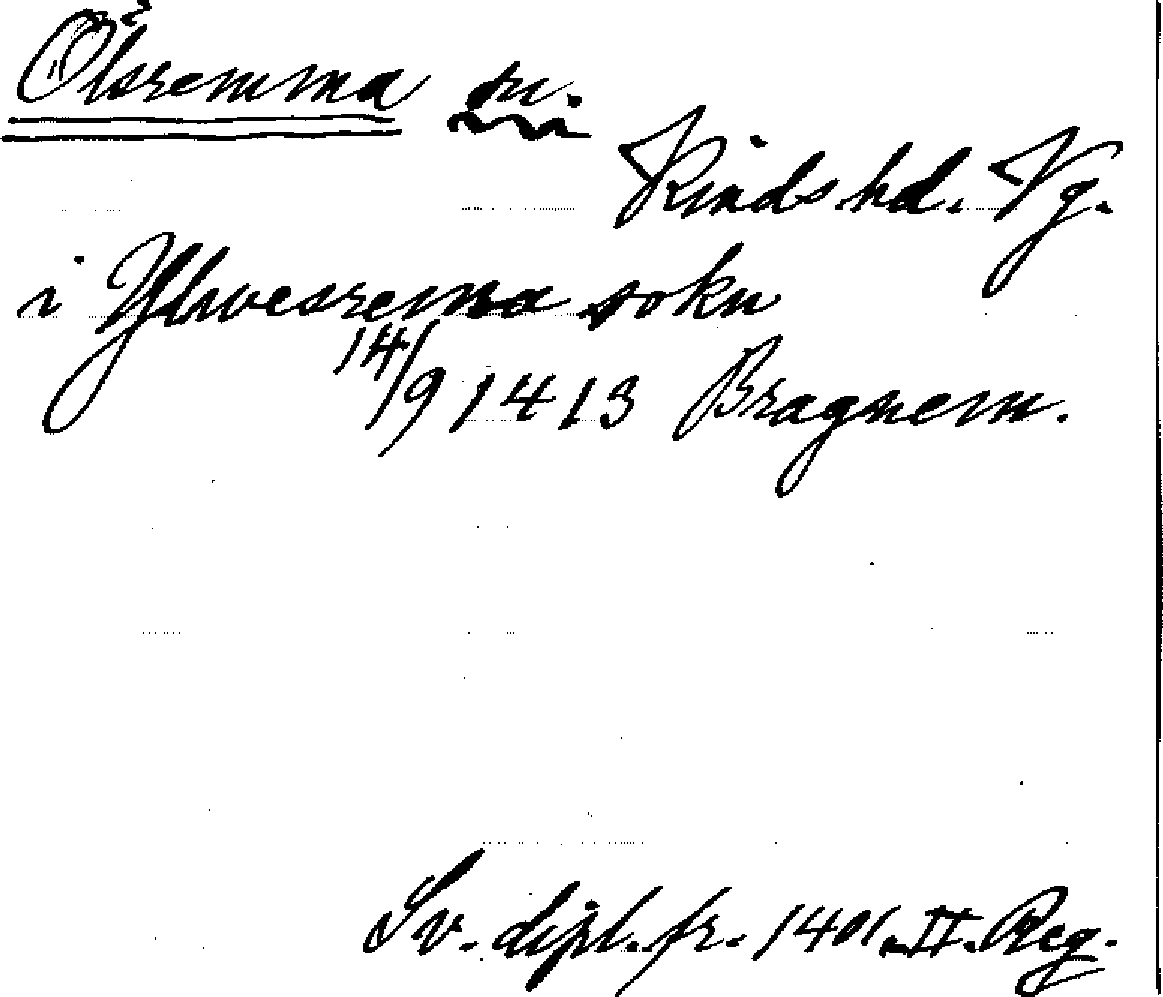 Ölsremma sn.
Kinds hd. Vg.
i Yluesrema sokn
14/9 1413 Bragnem.
Sv. dipl. fr. 1401. II. Reg.